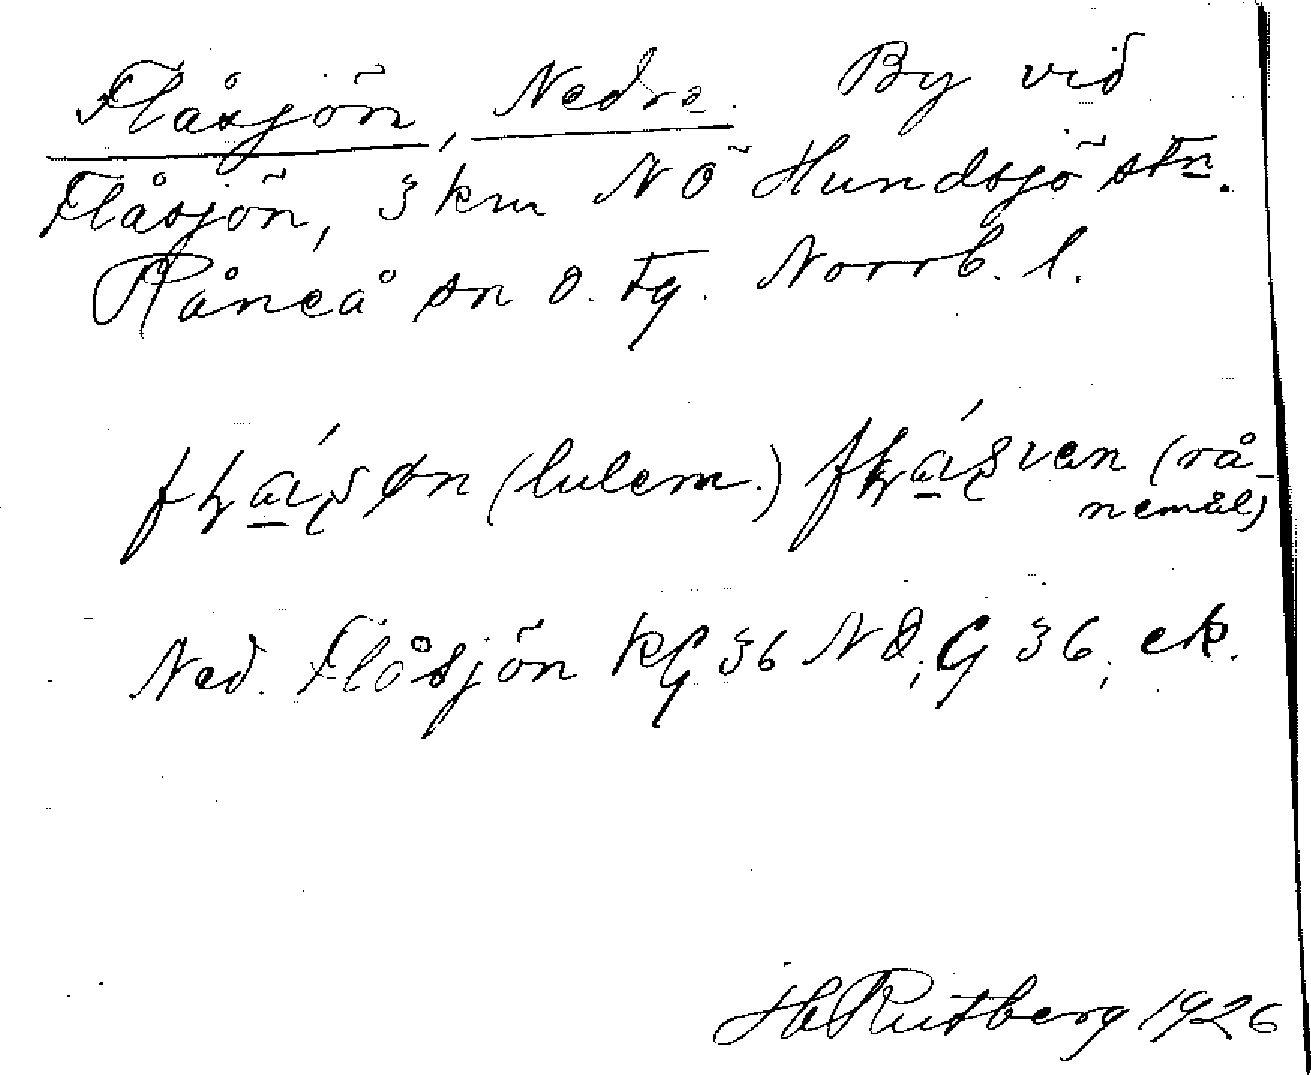 Flåsjön, Nedre. By vid
Flåsjön, 3 km NÖ Hundsjö stn.
Råneå sn o. tg. Norrb. l.
(lulem.) (rå-
nemål)
Ned. Flåsjön kG 36 NO; G 36, ek.
H Rutberg 1926